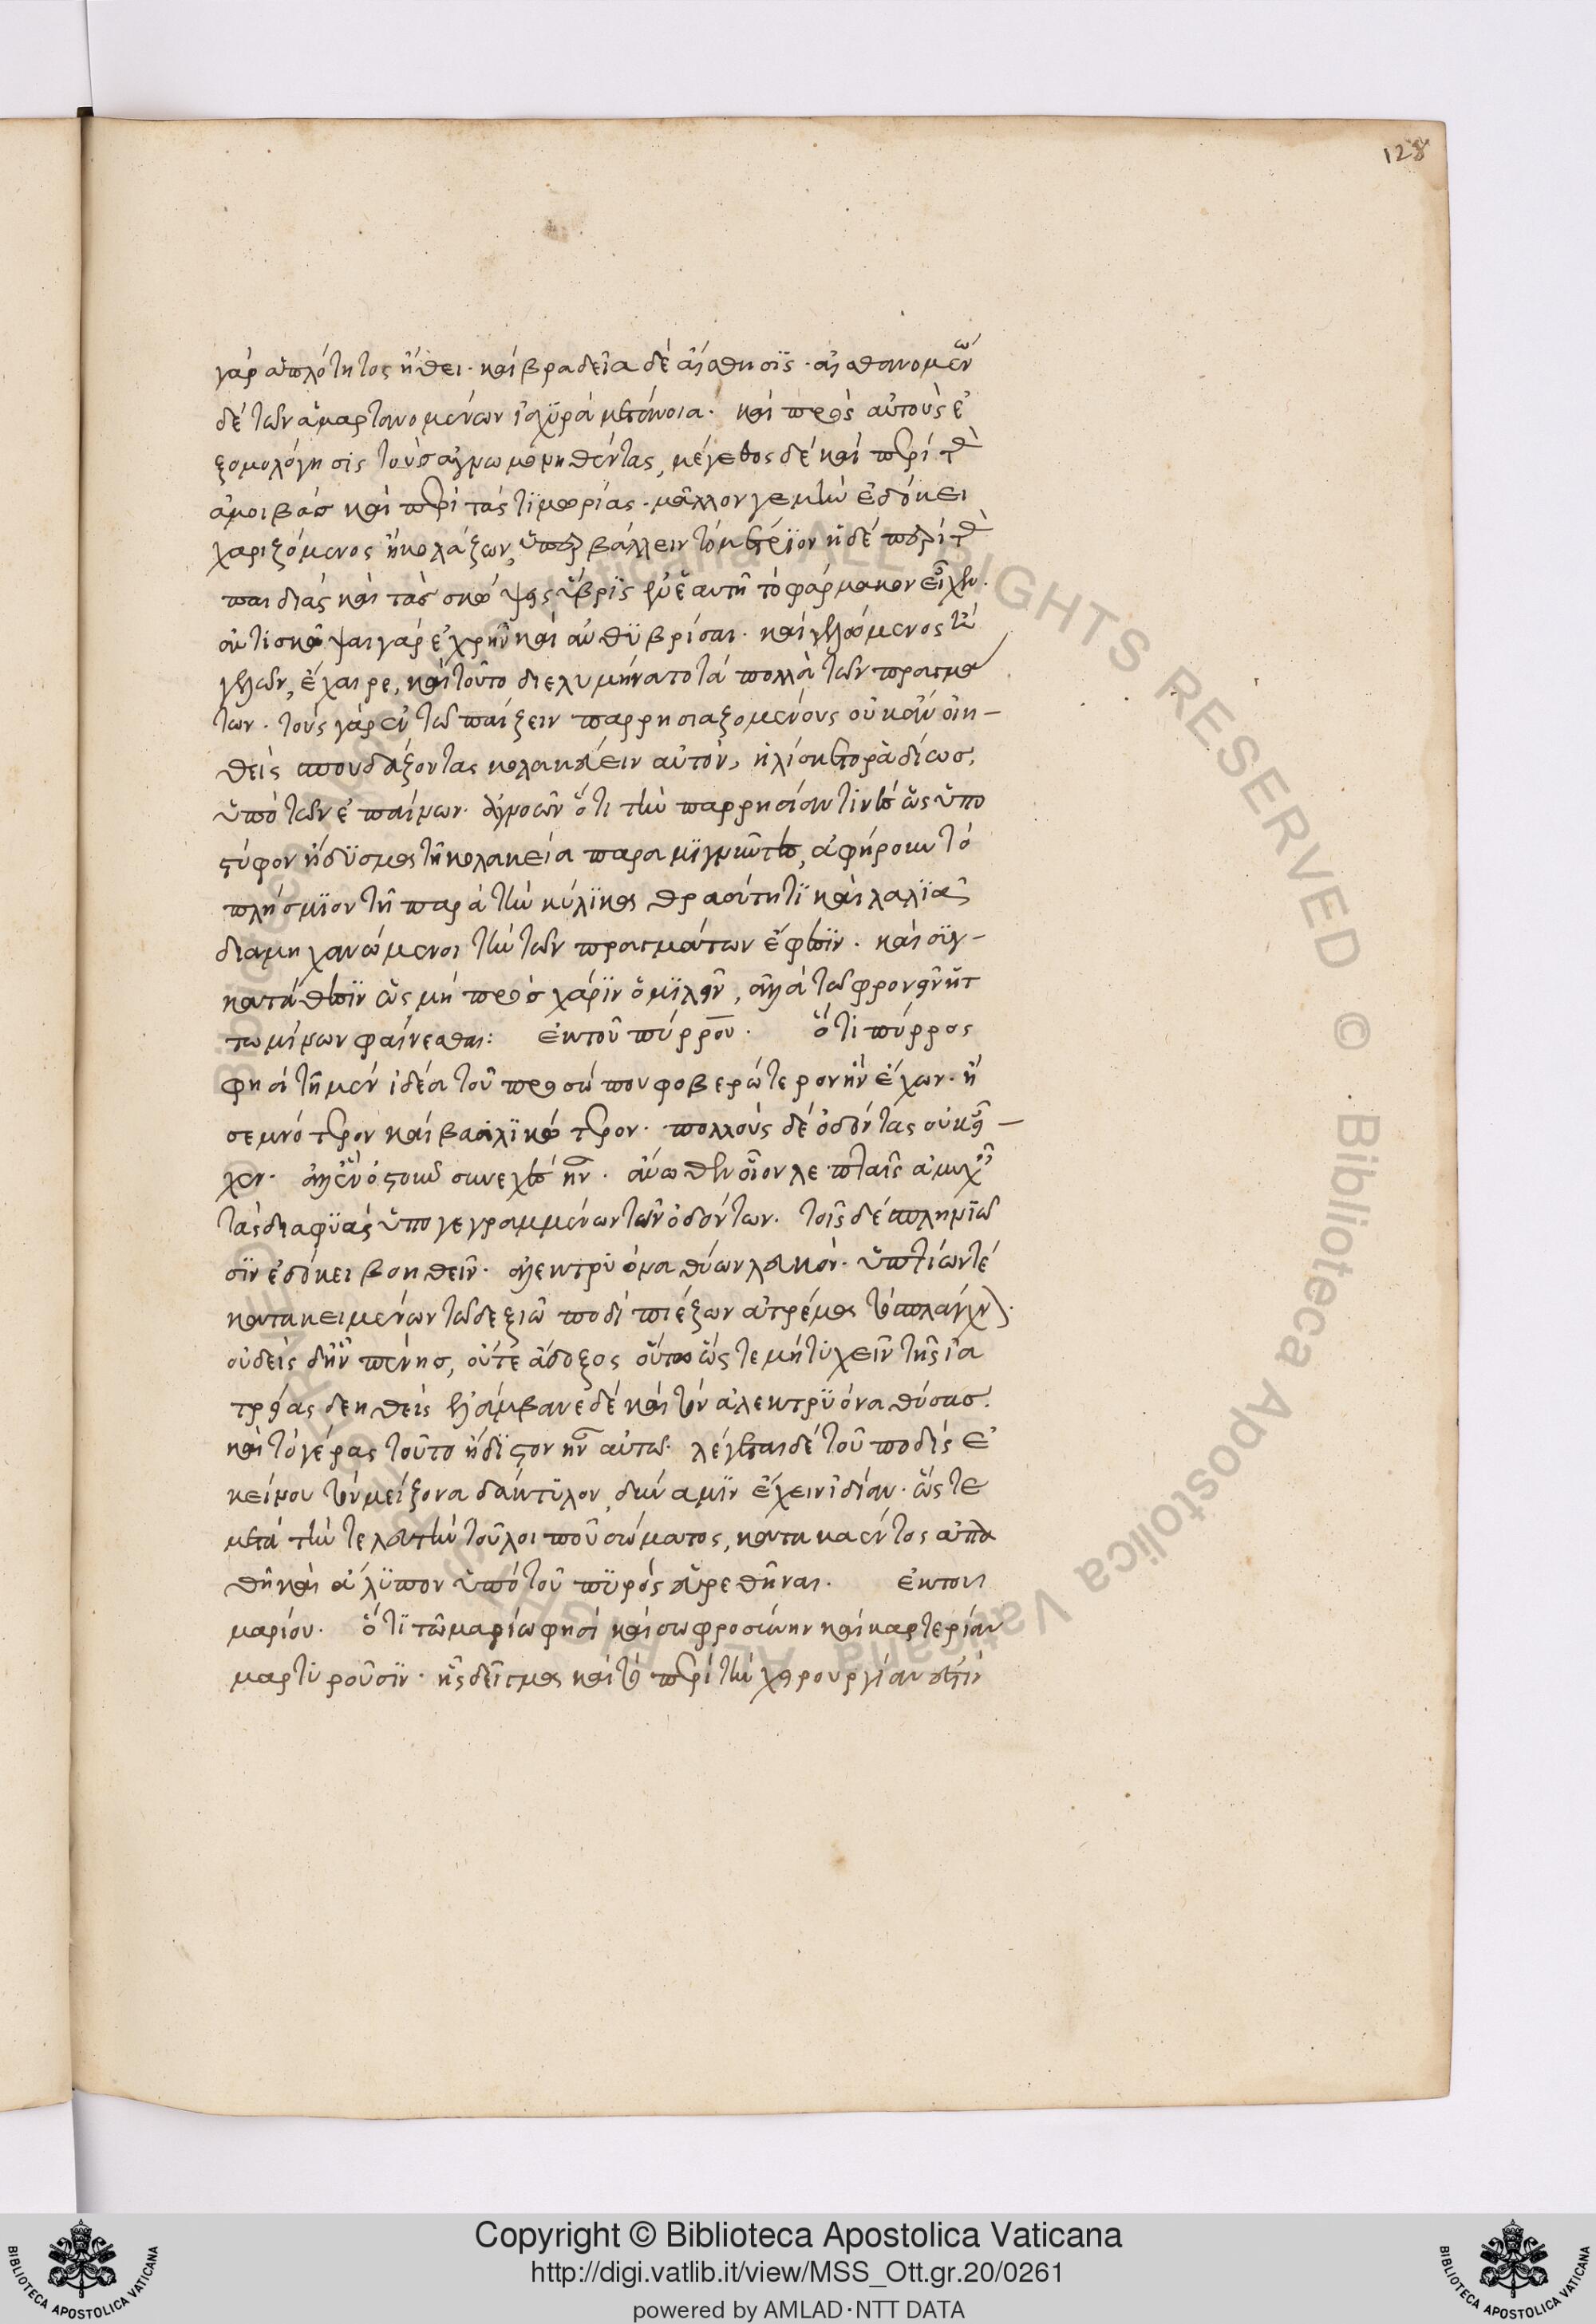 128
γὰρ ἁπλότητος ἤθει· καὶ βραδεῖα δὲ αἴσθησις· αἰσθανομένω
δὲ τῶν ἁμαρτανομένων ἰσχυρὰ μετάνοια· καὶ πρὸς αὐτοὺς ἐ
ξομολόγησις τοὺς ἀγνωμονηθέντας, μέγεθος δὲ καὶ περὶ τὰς
ἀμοιβὰς καὶ περὶ τὰς τιμωρίας· μᾶλλόν γε μὴν ἐδόκει
χαριζόμενος ἢ κολάζων, ὑπερβάλλειν τὸ μέτριον ἡ δὲ περὶ τὰς
παιδιὰς καὶ τὰς σκώψεις ὕβρις ἐν ἑαυτῇ τὸ φάρμακον εἶχεν·
ἀντισκῶψαι γὰρ ἐχρῆν καὶ ἀνθυβρίσαι· καὶ γελώμενος τῶν
γελῶν, ἔχαιρε, καὶ τοῦτο διελυμήνατο τὰ πολλὰ τῶν πραγμά
των· τοὺς γὰρ ἐν τῶ παίζειν παρρησιαζομένους οὐκ ἂν οἰη-
θεὶς σπουδάζοντας κολακεύειν αὐτὸν, ἡλίσκετο ῥαδίως,
ὑπὸ τῶν ἐπαίνων· ἀγνοῶν ὅτι τὴν παρρησίαν τινὲς ὡς ὑπο
στύφον ἥδυσμα τῇ κολακεία παραμιγνῦντες, ἀφήρουν τὸ
πλήσμιον τῇ παρὰ τὴν κύλικα θρασύτητι καὶ λαλιᾶ
διαμηχανώμενοι τὴν τῶν πραγμάτων ἔφεσιν· καὶ συγ-
κατάθεσιν ὡς μὴ πρὸς χάριν ὁμιλεῖν, ἀλλὰ τῶ φρονεῖν ἡτ
τωμένων φαίνεσθαι: ἐκ τοῦ πύρρου. ὅτι πύρρος
φησὶ τῇ μὲν ἰδέα τοῦ προσώπου φοβερώτερον ἦν ἔχων· ἢ
σεμνότερον καὶ βασιλικώτερον· πολλοὺς δὲ ὀδόντας οὐκ εἶ-
χεν· ἀλλ' ἓν ὀστοῦν συνεχὲς ἦν· ἄνωθεν οἷον λεπταῖς ἀμυχαῖς
τὰς διαφυὰς ὑπογεγραμμένων τῶν ὀδόντων· τοῖς δὲ σπληνιῶ
σιν ἐδόκει βοηθεῖν· ἀλεκτρυόνα θύων λευκόν· ὑπτίων τέ
κατακειμένων τῶ δεξιῶ ποδὶ πιέζων ἀτρέμα τὸ σπλάγχνον·
οὐδεὶς δ' ἦν πένης, οὔτε ἄδοξος οὕτως ὥστε μὴ τυχεῖν τῆς ἰα
τρείας δεηθεὶς ἐλάμβανε δὲ καὶ τὸν ἀλεκτρυόνα θύσας·
καὶ τὸ γέρας τοῦτο ἥδιστον ἦν αὐτῶ· λέγεται δὲ τοῦ ποδὸς ἐ
κείνου τὸν μείζονα δάκτυλον, δύναμιν ἔχειν ἰδίαν· ὥστε
μετὰ τὴν τελευτὴν τοῦ λοιποῦ σώματος, κατακαέντος ἀπα
θῆ καὶ ἄλυπον ὑπὸ τοῦ πυρὸς εὑρεθῆναι. ἐκ τοῦ
μαρίου. ὅτι τῶ μαρίω φησὶ καὶ σωφροσύνην καὶ καρτερίαν
μαρτυροῦσιν· ἧς δεῖγμα καὶ τὸ περὶ τὴν χειρουργίαν ἐστίν
Copyright © Biblioteca Apostolica Vaticana
http://digi.vatlib.it/view/MSS_Ott.gr.20/0261
powered by AMLAD·NTT DATA